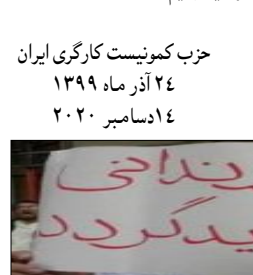 حزب کمونیست کارگری ایران
۲٤ آذر ماه ۱۳۹۹
۱٤دسامبر ۲۰۲۰
زندانی
گردد